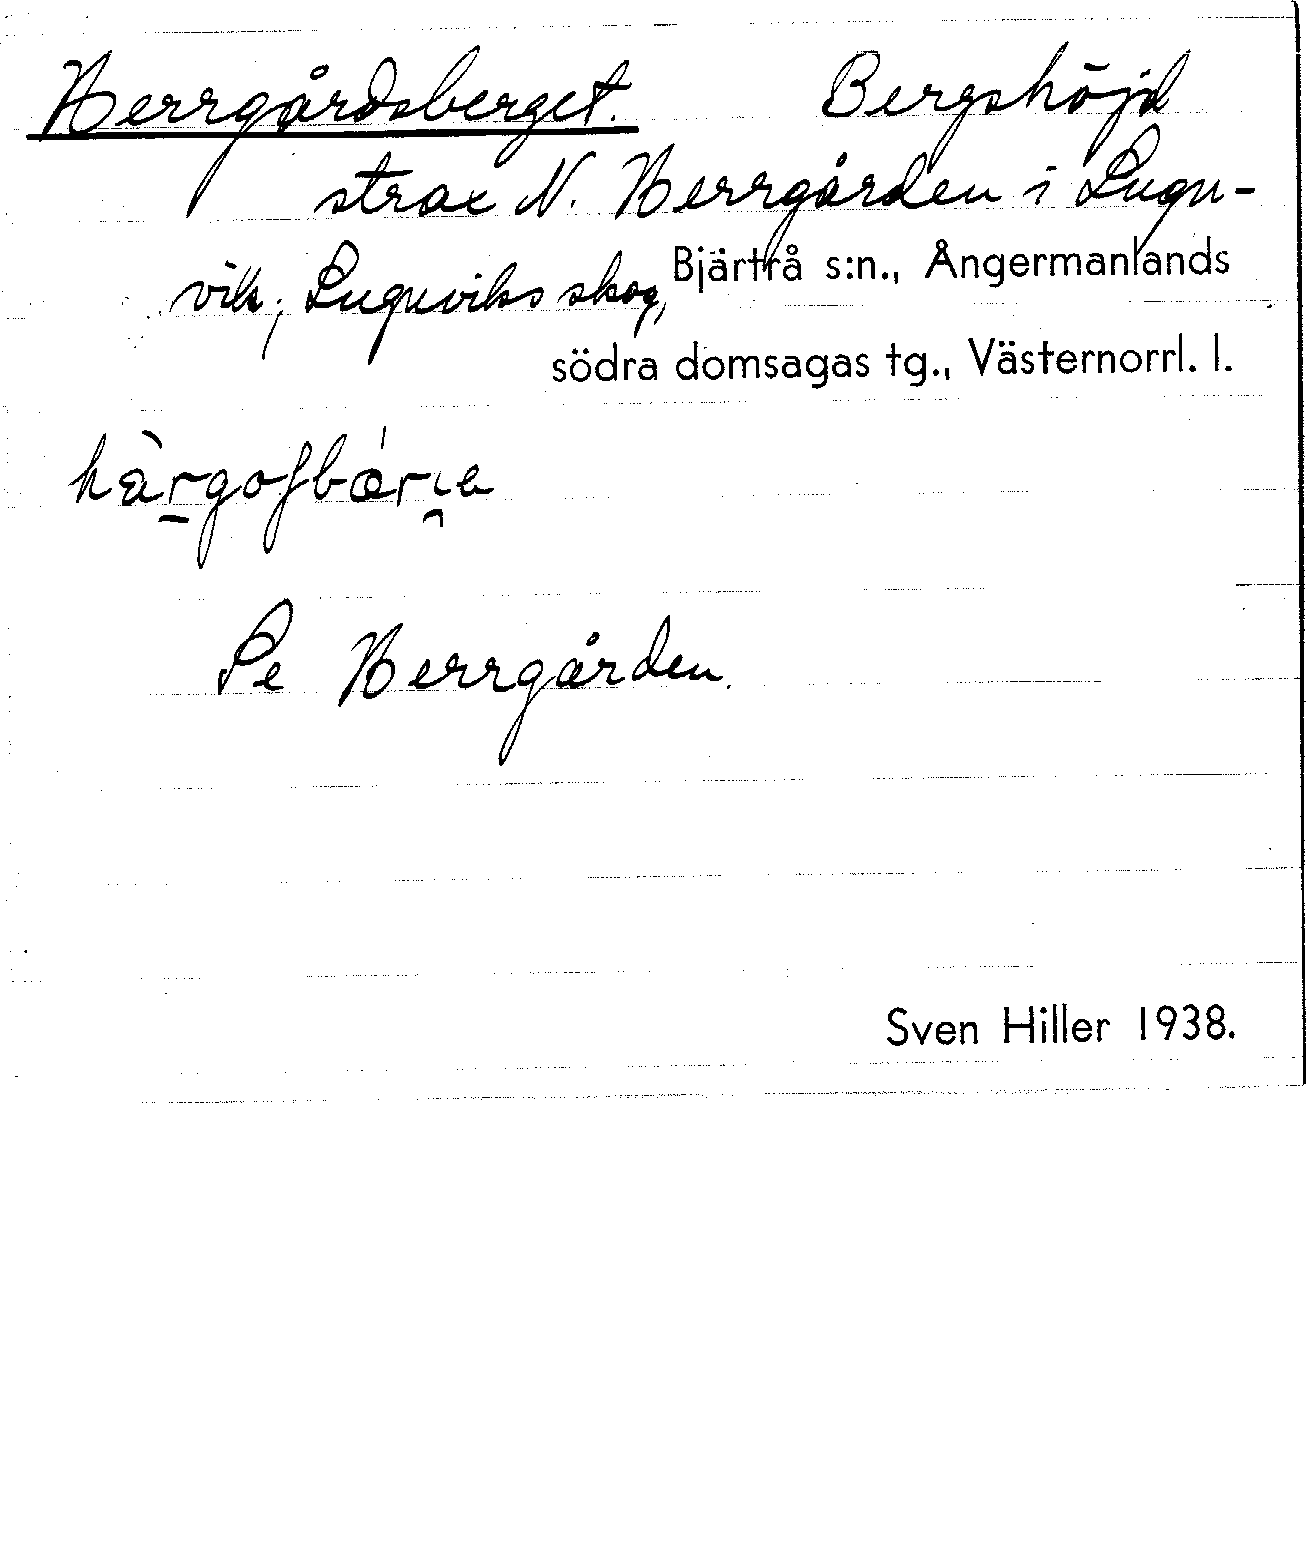 Herrgårdsberget. Bergshöjd
strax N. Herrgården i Lugn-
vik, Lugnviks skog, Bjärtrå s:n., Ångermanlands
södra domsagas tg., Västernorrl. l.
Se Herrgården.
Sven Hiller 1938.